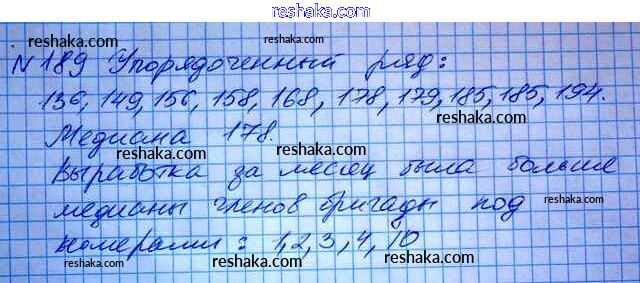 reshaka.com
reshaka.com
№189 Упорядоченный ряд:
reshaka.com
136, 149, 156, 158, 168, 178, 179, 185, 185, 194.
reshaka.com
reshaka.com
Медиана 178.
reshaka.com
Выработка за месяц была больше
reshaka.com
медианы членов бригады под
reshaka.com
reshaka.com
номерами: 1, 2, 3, 4, 10
reshaka.com
reshaka.com
reshaka.com
reshaka.com